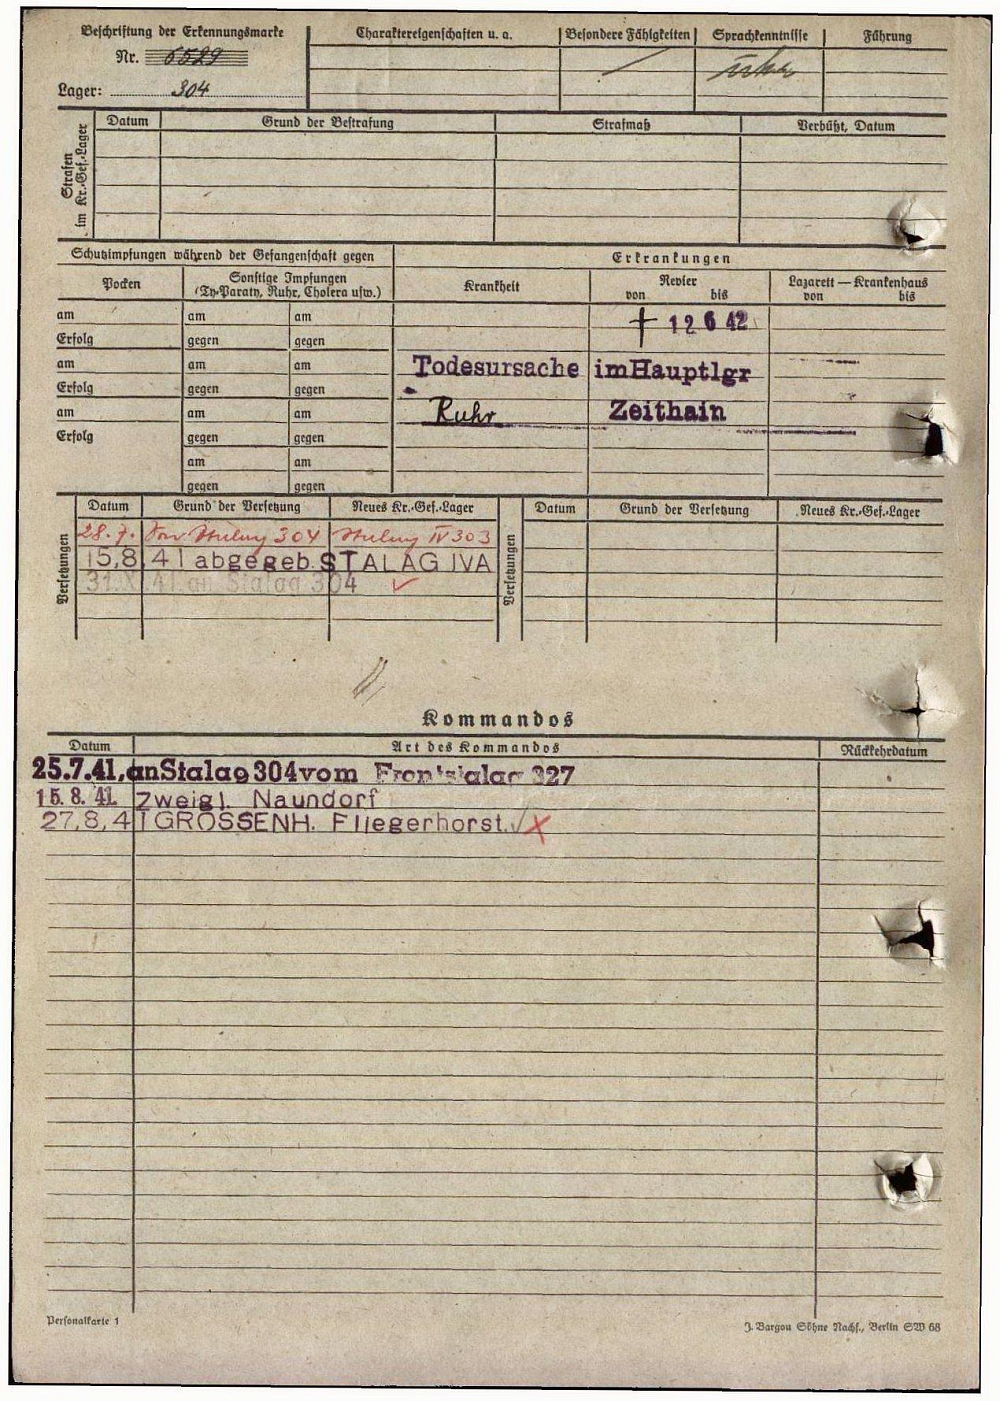 Beschriftung der Erkennungsmarke
Nr. 6529
Lager: 304
Charaktereigenschaften u. a.
Besondere Fähigkeiten
Sprachkenntnisse
Führung
Strafen im Kr.-Gef.-Lager
Datum
Grund der Bestrafung
Strafmaß
Verbüßt, Datum
Schutzimpfungen während der Gefangenschaft gegen
Erkrankungen
Pocken
Sonstige Impfungen
(Ty-Paraty, Ruhr, Cholera usw.)
Krankheit
Revier
von bis
Lazarett — Krankenhaus
von bis
am am am
† 12 6 42
Erfolg gegen gegen
am am am
Todesursache im Hauptlgr
Erfolg gegen gegen
am am am
Ruhr Zeithain
Erfolg gegen gegen
am am
gegen gegen
Versetzungen
Datum Grund der Versetzung Neues Kr.-Gef.-Lager
28.7. Von 304 IV 303
15,8 41 abgegeb. STALAG IVA
31.X.41 an Stalag 304
Versetzungen
Datum Grund der Versetzung Neues Kr.-Gef.-Lager
Kommandos
Datum Art des Kommandos Rückkehrdatum
25.7.41, an Stalag 304 vom Frontstalag 327
15.8.41. Zweigl. Naundorf
27,8,41 GROSSENH. Fliegerhorst.
Personalkarte 1
J. Bargou Söhne Nachf., Berlin SW 68